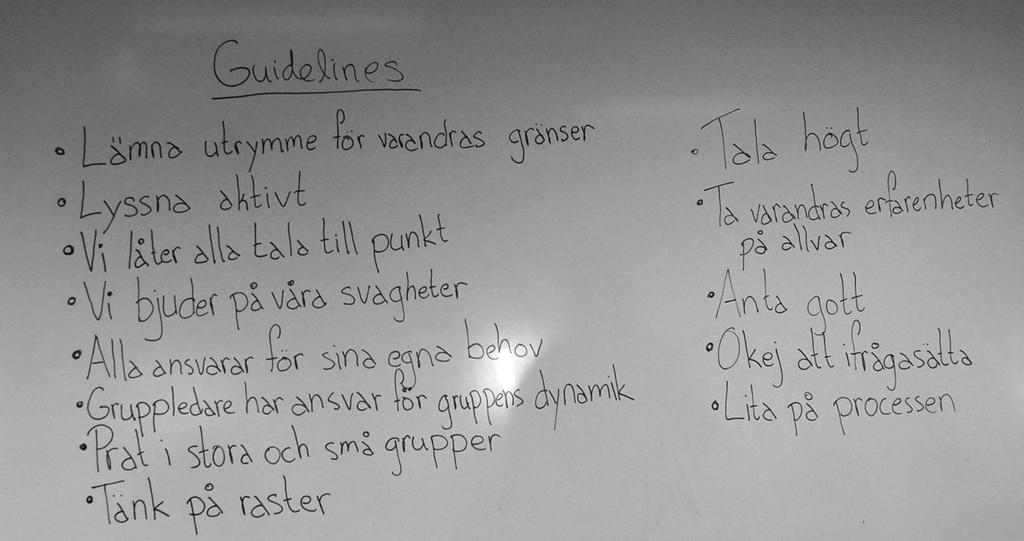 Guidelines
• Lämna utrymme för varandras gränser
• Lyssna aktivt
• Vi låter alla tala till punkt
• Vi bjuder på våra svagheter
• Alla ansvarar för sina egna behov
• Gruppledare har ansvar för gruppens dynamik
• Prat i stora och små grupper
• Tänk på raster
• Tala högt
• Ta varandras erfarenheter
på allvar
• Anta gott
• Okej att ifrågasätta
• Lita på processen